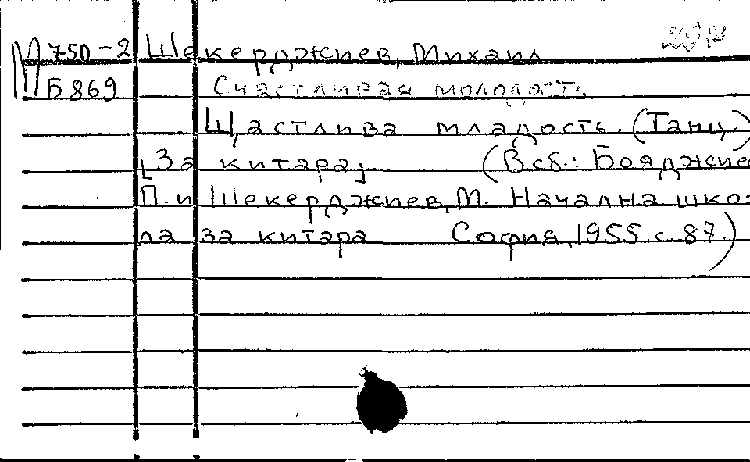 М 750-2 Шекерджиев, Михаил
Б869 Счастливая молодость
Щастлива младост. (Танц.)
[За китара] (В сб.: Бояджиев
П. и Шекерджиев, М. Начална шко-
ла за китара София, 1955 с. 87.)